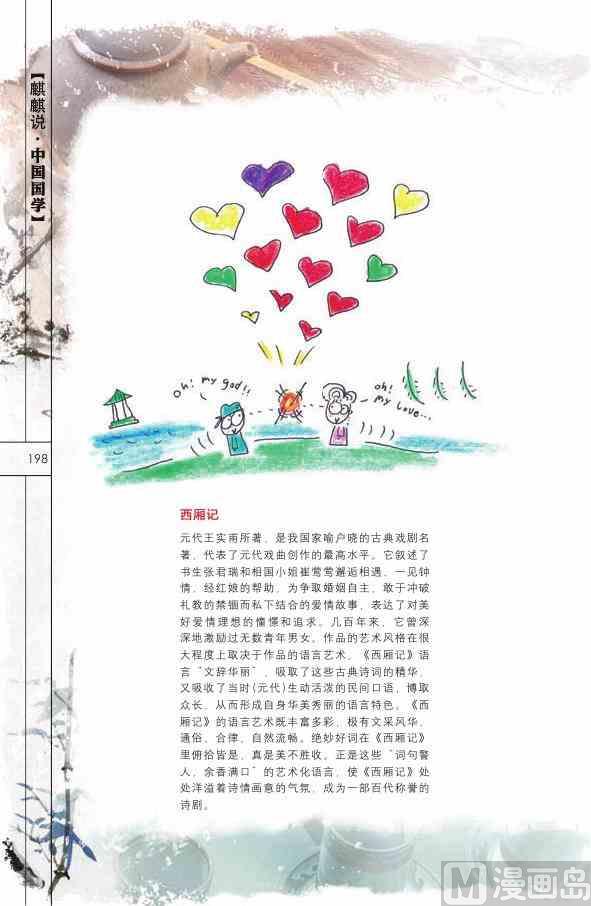 【麒麟说·中国国学】
Oh! my god!!
oh!
my Love...
198
西厢记
元代王实甫所著，是我国家喻户晓的古典戏剧名
著，代表了元代戏曲创作的最高水平。它叙述了
书生张君瑞和相国小姐崔莺莺邂逅相遇、一见钟
情，经红娘的帮助，为争取婚姻自主，敢于冲破
礼教的禁锢而私下结合的爱情故事，表达了对美
好爱情理想的憧憬和追求。几百年来，它曾深
深地激励过无数青年男女。作品的艺术风格在很
大程度上取决于作品的语言艺术。《西厢记》语
言“文辞华丽”，吸取了这些古典诗词的精华，
又吸收了当时(元代)生动活泼的民间口语，博取
众长，从而形成自身华美秀丽的语言特色。《西
厢记》的语言艺术既丰富多彩，极有文采风华，
通俗、合律、自然流畅。绝妙好词在《西厢记》
里俯拾皆是，真是美不胜收。正是这些“词句警
人，余香满口”的艺术化语言，使《西厢记》处
处洋溢着诗情画意的气氛，成为一部百代称誉的
诗剧。
M漫画岛